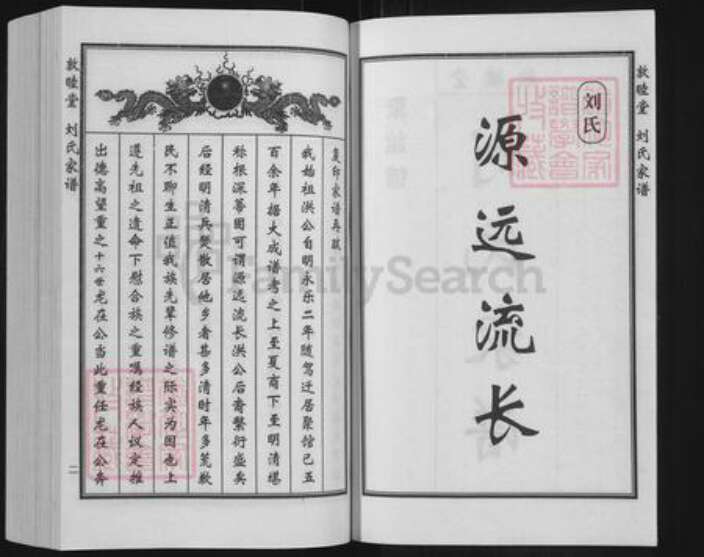 敦睦堂 刘氏家谱
刘氏
源远流长
复印家谱再跋
我始祖洪公自明永乐二年随驾迁居聚馆已五
百余年据大成谱考之上至夏商下至明清堪
称根深蒂固可谓源远流长洪公后裔繁衍盛矣
后经明清兵燹散居他乡者甚多清时年多荒歉
民不聊生正值我族先辈修谱之际实为因也上
遵先祖之遗命下慰合族之重嘱经族人议定推
出德高望重之十六世龙在公当此重任龙在公奔
敦睦堂 刘氏家谱
二
FamilySearch